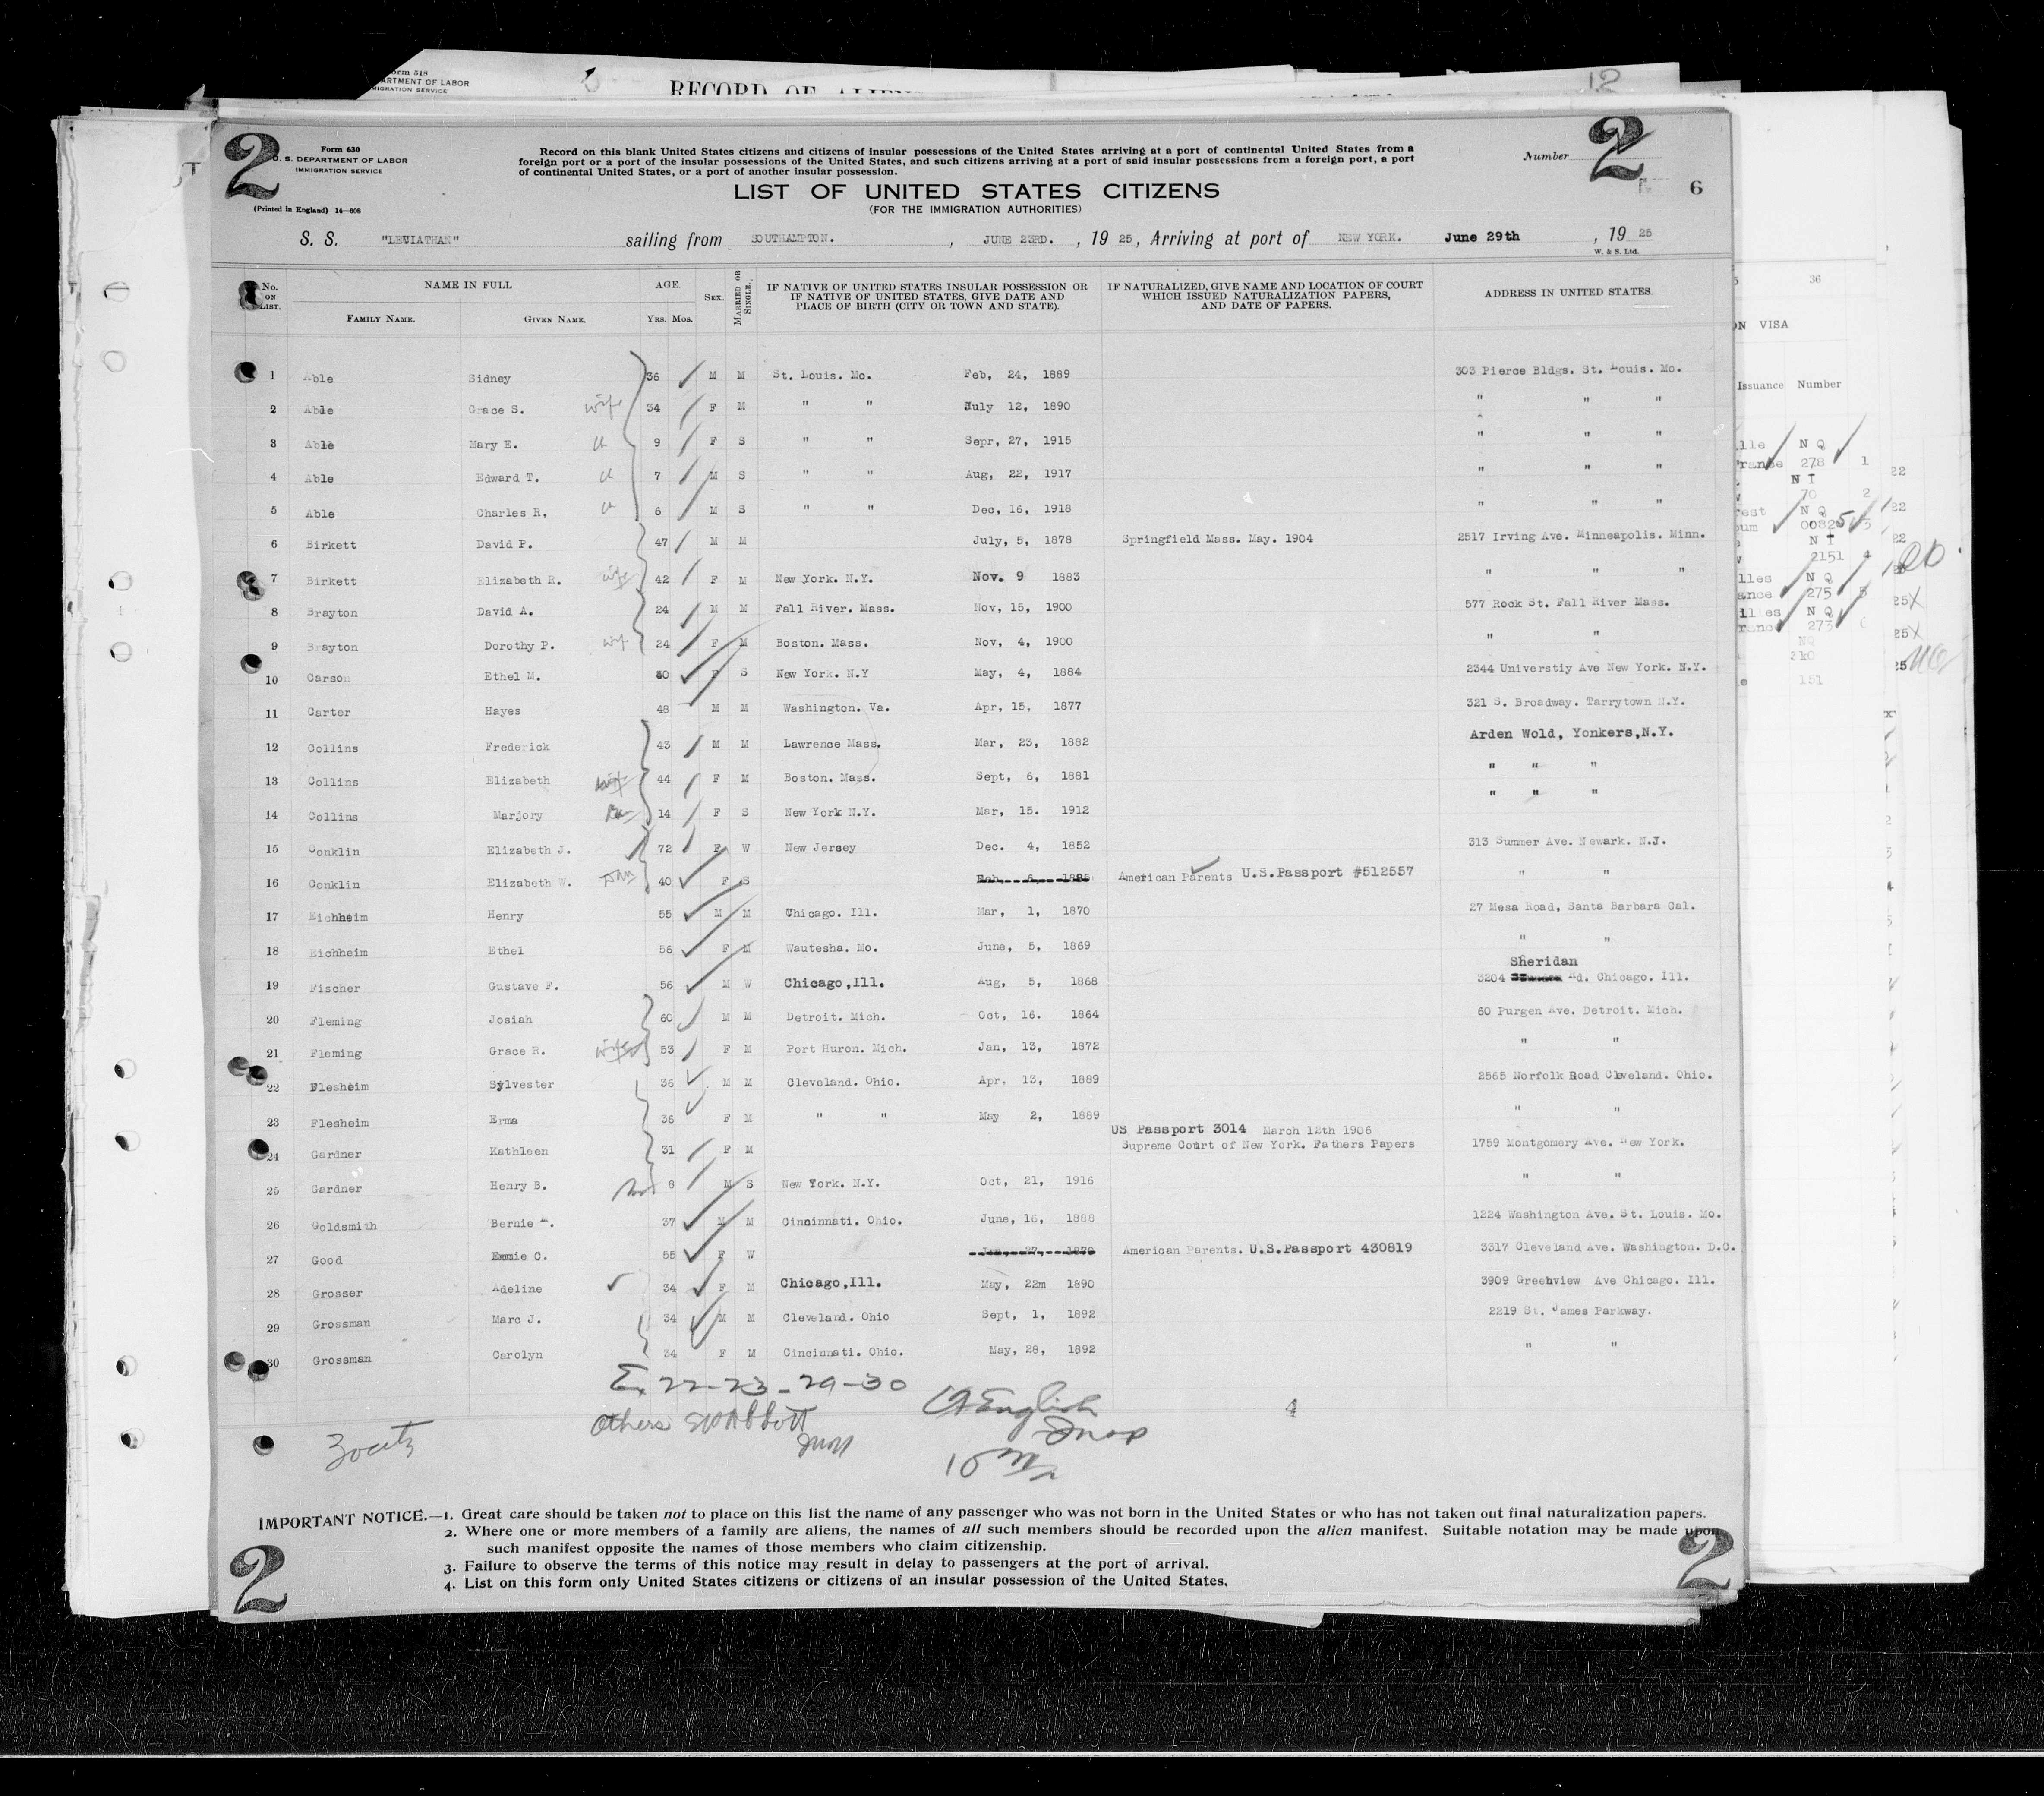 Form 518
DEPARTMENT OF LABOR
IMMIGRATION SERVICE
RECORD OF ALIEN
12
2
Form 630
U. S. DEPARTMENT OF LABOR
IMMIGRATION SERVICE
(Printed in England) 14—608
Record on this blank United States citizens and citizens of insular possessions of the United States arriving at a port of continental United States from a
foreign port or a port of the insular possessions of the United States, and such citizens arriving at a port of said insular possessions from a foreign port, a port
of continental United States, or a port of another insular possession.
Number 2
6
LIST OF UNITED STATES CITIZENS
(FOR THE IMMIGRATION AUTHORITIES)
S. S. "LEVIATHAN" sailing from SOUTHAMPTON. , JUNE 23RD. , 19 25, Arriving at port of NEW YORK. June 29th , 19 25
W. & S. Ltd.
No. ON LIST. NAME IN FULL FAMILY NAME. GIVEN NAME. AGE. YRS. MOS. SEX. MARRIED OR SINGLE. IF NATIVE OF UNITED STATES INSULAR POSSESSION OR IF NATIVE OF UNITED STATES, GIVE DATE AND PLACE OF BIRTH (CITY OR TOWN AND STATE). IF NATURALIZED, GIVE NAME AND LOCATION OF COURT WHICH ISSUED NATURALIZATION PAPERS, AND DATE OF PAPERS. ADDRESS IN UNITED STATES.
1 Able Sidney 36 M M St. Louis. Mo. Feb, 24, 1889 303 Pierce Bldgs. St. Louis. Mo.
2 Able Grace S. wife 34 F M " " July 12, 1890 " " "
3 Able Mary E. ch 9 F S " " Sepr, 27, 1915 " " "
4 Able Edward T. ch 7 M S " " Aug, 22, 1917 " " "
5 Able Charles R, ch 6 M S " " Dec, 16, 1918 " " "
6 Birkett David P. 47 M M July, 5, 1878 Springfield Mass. May. 1904 2517 Irving Ave. Minneapolis. Minn.
7 Birkett Elizabeth R. wife 42 F M New York. N.Y. Nov. 9 1883 " " "
8 Brayton David A. 24 M M Fall River. Mass. Nov, 15, 1900 577 Rock St. Fall River Mass.
9 Brayton Dorothy P. wif 24 F M Boston. Mass. Nov, 4, 1900 " "
10 Carson Ethel M. 30 F S New York. N.Y May, 4, 1884 2344 Universtiy Ave New York. N.Y.
11 Carter Hayes 48 M M Washington. Va. Apr, 15, 1877 321 S. Broadway. Tarrytown N.Y.
12 Collins Frederick 43 M M Lawrence Mass. Mar, 23, 1882 Arden Wold, Yonkers,N.Y.
13 Collins Elizabeth wife 44 F M Boston. Mass. Sept, 6, 1881 " " "
14 Collins Marjory 14 F S New York N.Y. Mar, 15. 1912 " " "
15 Conklin Elizabeth J. 72 F W New Jersey Dec. 4, 1852 313 Summer Ave. Newark. N.J.
16 Conklin Elizabeth W. Dau 40 F S Feb, 6, 1885 American Parents U.S.Passport #512557 " "
17 Eichheim Henry 55 M M Chicago. Ill. Mar, 1, 1870 27 Mesa Road, Santa Barbara Cal.
18 Eichheim Ethel 56 F M Wautesha. Mo. June, 5, 1869 " "
Sheridan
19 Fischer Gustave F. 56 M W Chicago,Ill. Aug, 5, 1868 3204 Rd. Chicago. Ill.
20 Fleming Josiah 60 M M Detroit. Mich. Oct, 16. 1864 60 Purgen Ave. Detroit. Mich.
21 Fleming Grace R. wife 53 F M Port Huron. Mich. Jan, 13, 1872 " "
22 Flesheim Sylvester 36 M M Cleveland. Ohio. Apr. 13, 1889 2565 Norfolk Road Cleveland. Ohio.
23 Flesheim Erma 36 F M " " May 2, 1889 " "
US Passport 3014 March 12th 1906
24 Gardner Kathleen 31 F M Supreme Court of New York. Fathers Papers 1759 Montgomery Ave. New York.
25 Gardner Henry B. 8 M S New York. N.Y. Oct, 21, 1916 " "
26 Goldsmith Bernie 37 M M Cincinnati. Ohio. June, 16, 1888 1224 Washington Ave. St. Louis. Mo.
27 Good Emmie C. 55 F W Jan, 27, 1870 American Parents. U.S.Passport 430819 3317 Cleveland Ave. Washington. D.C.
28 Grosser Adeline 34 F M Chicago,Ill. May, 22m 1890 3909 Greenview Ave Chicago. Ill.
29 Grossman Marc J. 34 M M Cleveland. Ohio Sept, 1, 1892 2219 St. James Parkway.
30 Grossman Carolyn 34 F M Cincinnati. Ohio. May, 28, 1892 " "
Ex 22-23-29-30
Others EW Abbott
English
Insp
4
IMPORTANT NOTICE.—1. Great care should be taken not to place on this list the name of any passenger who was not born in the United States or who has not taken out final naturalization papers.
2. Where one or more members of a family are aliens, the names of all such members should be recorded upon the alien manifest. Suitable notation may be made upon
such manifest opposite the names of those members who claim citizenship.
3. Failure to observe the terms of this notice may result in delay to passengers at the port of arrival.
4. List on this form only United States citizens or citizens of an insular possession of the United States.
2
2
36
ON VISA
Issuance Number
N Q
278 1
N I
70 2
N Q
N I
2151 4
N Q
275 5
N Q
273
151